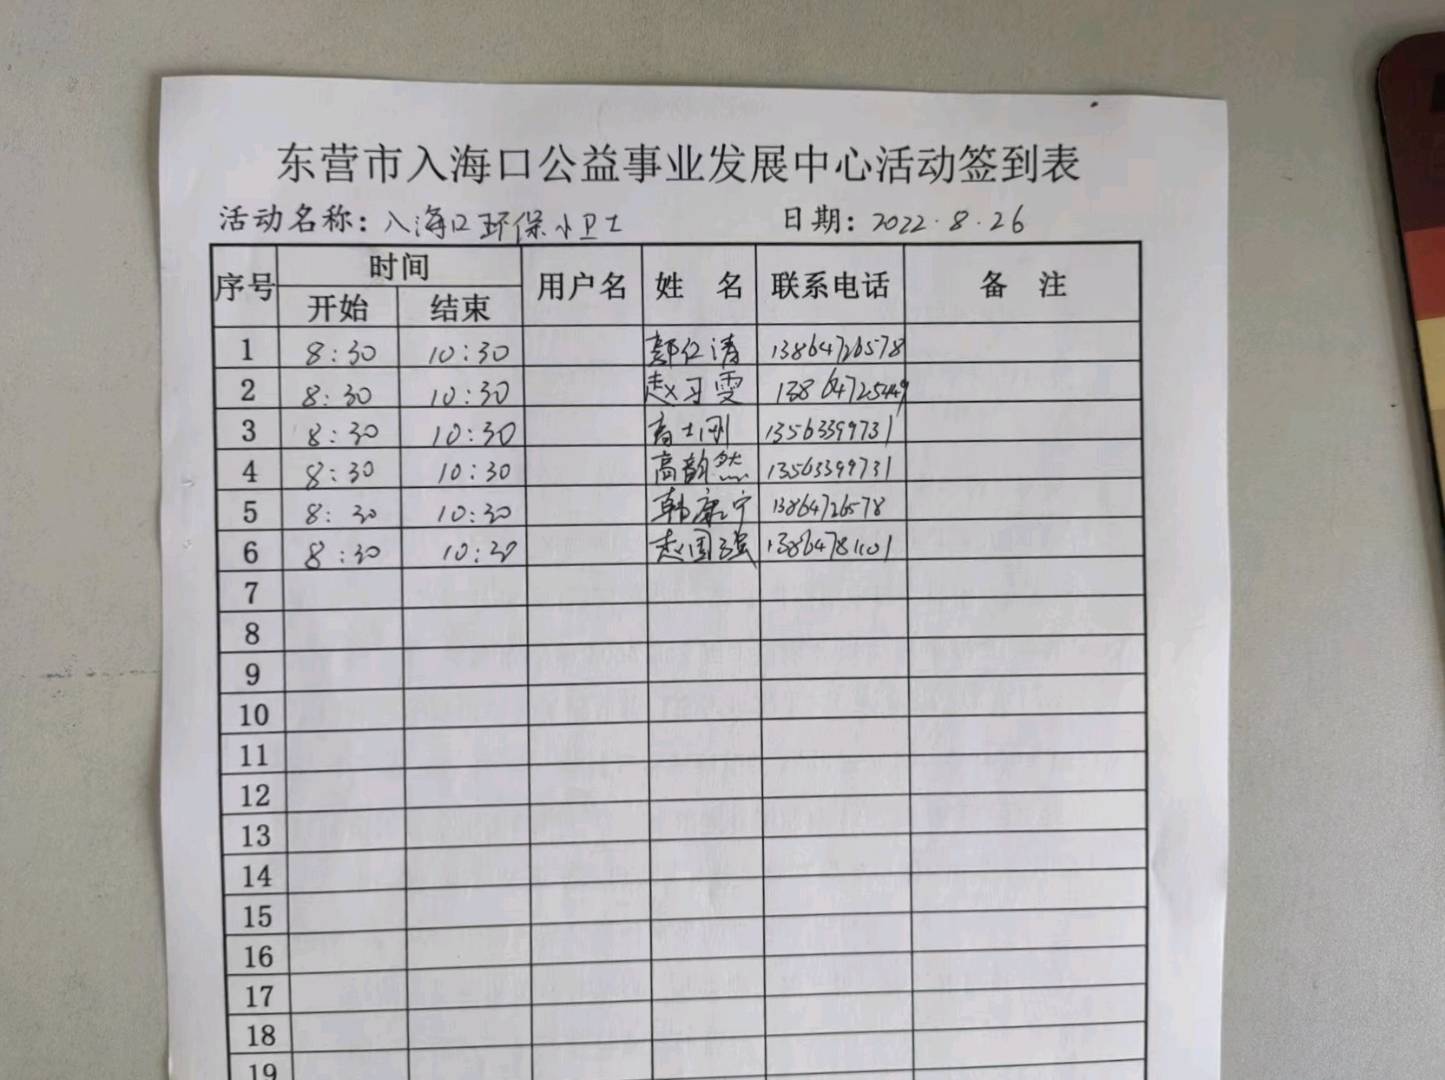 东营市入海口公益事业发展中心活动签到表
活动名称：入海口环保小卫士 日期：2022.8.26
序号 时间 用户名 姓 名 联系电话 备 注
开始 结束
1 8:30 10:30 仁清 13864726578
2 8:30 10:30 赵习雯 13864725449
3 8:30 10:30 高士刚 13563399731
4 8:30 10:30 高韵然 13563399731
5 8:30 10:30 韩康宁 13864726578
6 8:30 10:30 赵国强 13864781101
7
8
9
10
11
12
13
14
15
16
17
18
19